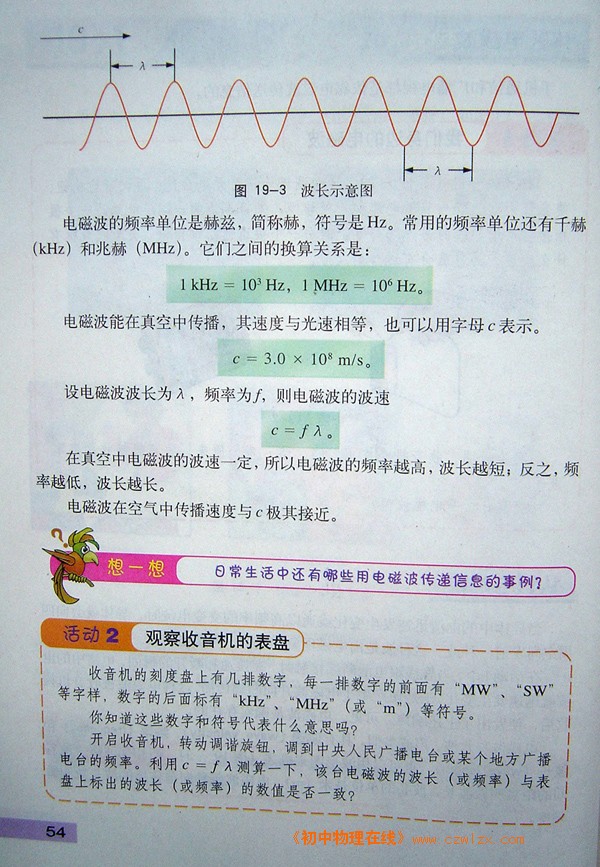 c
λ
λ
图 19-3 波长示意图
电磁波的频率单位是赫兹，简称赫，符号是 Hz。常用的频率单位还有千赫
(kHz) 和兆赫 (MHz)。它们之间的换算关系是：
1 kHz = 10³ Hz，1 MHz = 10⁶ Hz。
电磁波能在真空中传播，其速度与光速相等，也可以用字母 c 表示。
c = 3.0 × 10⁸ m/s。
设电磁波波长为 λ，频率为 f，则电磁波的波速
c = f λ。
在真空中电磁波的波速一定，所以电磁波的频率越高，波长越短；反之，频
率越低，波长越长。
电磁波在空气中传播速度与 c 极其接近。
想一想 日常生活中还有哪些用电磁波传递信息的事例？
活动 2 观察收音机的表盘
收音机的刻度盘上有几排数字，每一排数字的前面有“MW”、“SW”
等字样，数字的后面标有“kHz”、“MHz”（或“m”）等符号。
你知道这些数字和符号代表什么意思吗？
开启收音机，转动调谐旋钮，调到中央人民广播电台或某个地方广播
电台的频率。利用 c = f λ 测算一下，该台电磁波的波长（或频率）与表
盘上标出的波长（或频率）的数值是否一致？
54
《初中物理在线》www.czwlzx.com